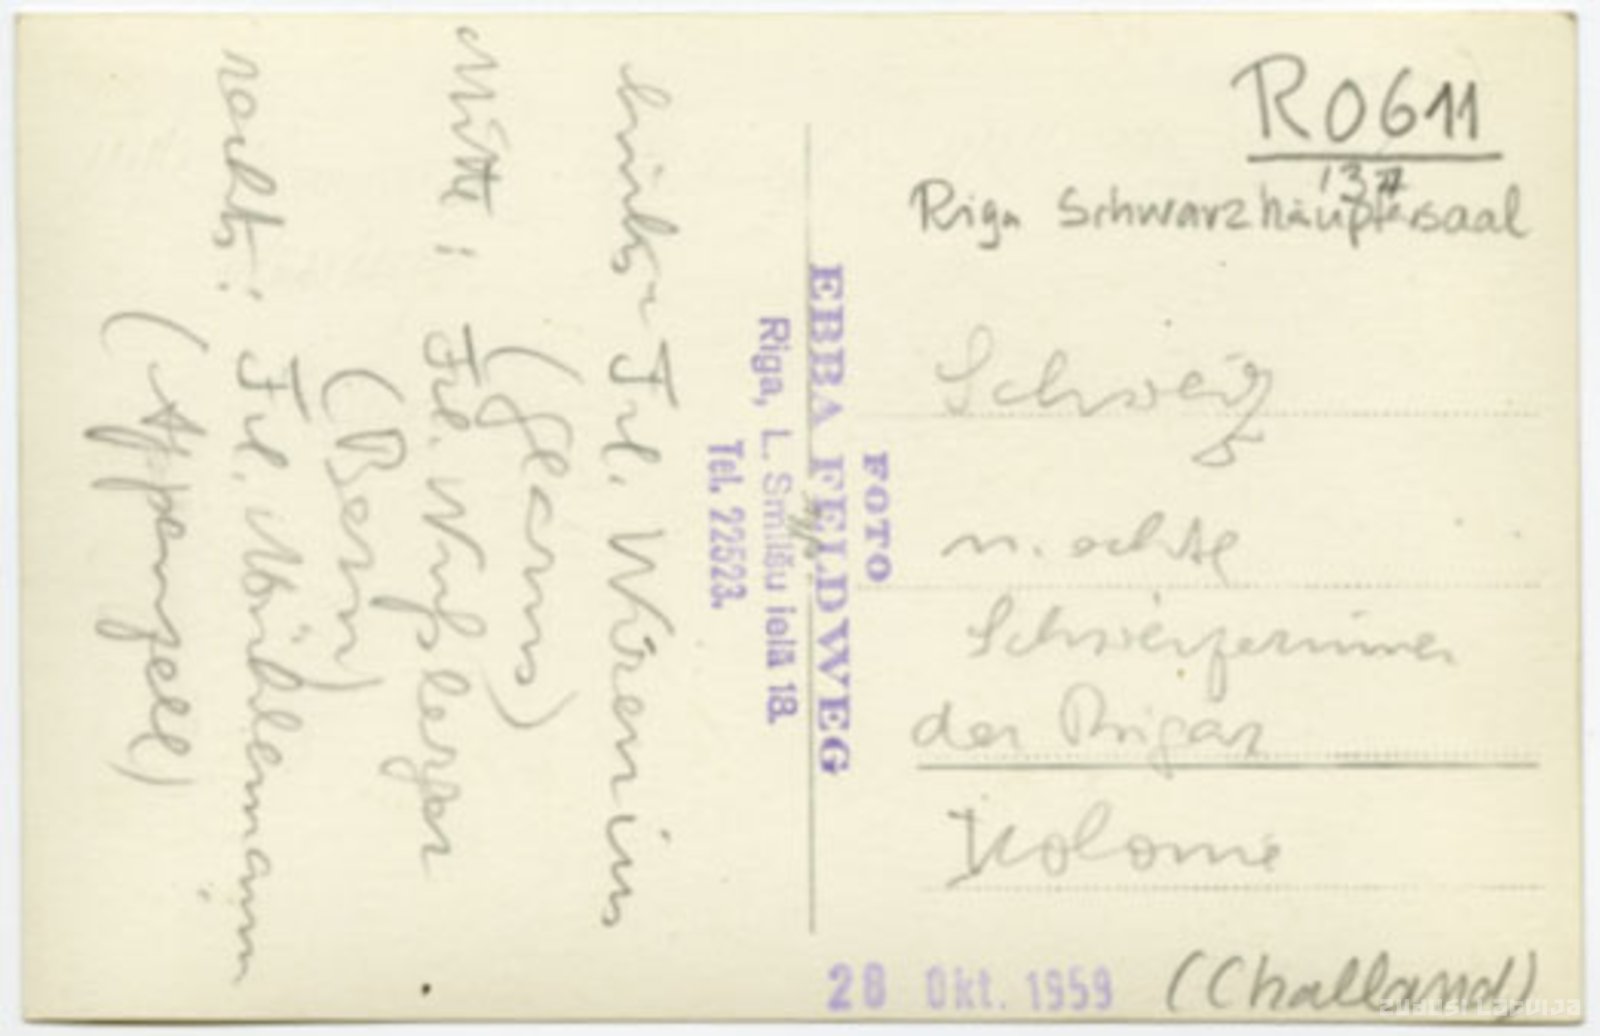 R0611
137
Riga Schwarzhäuptersaal
Schweiz
n. echte
Schweizerinnen
der Rigaer
Kolonie
(Challand)
28 Okt. 1959
FOTO
EBBA FELDWEG
Riga, L. Smilšu ielā 18.
Tel. 22523.
links Frl.
(Glarus)
Mitte: Frl. Nussberger
(Bern)
rechts: Frl. Mühlemann
(Appenzell)
zudusi Latvija